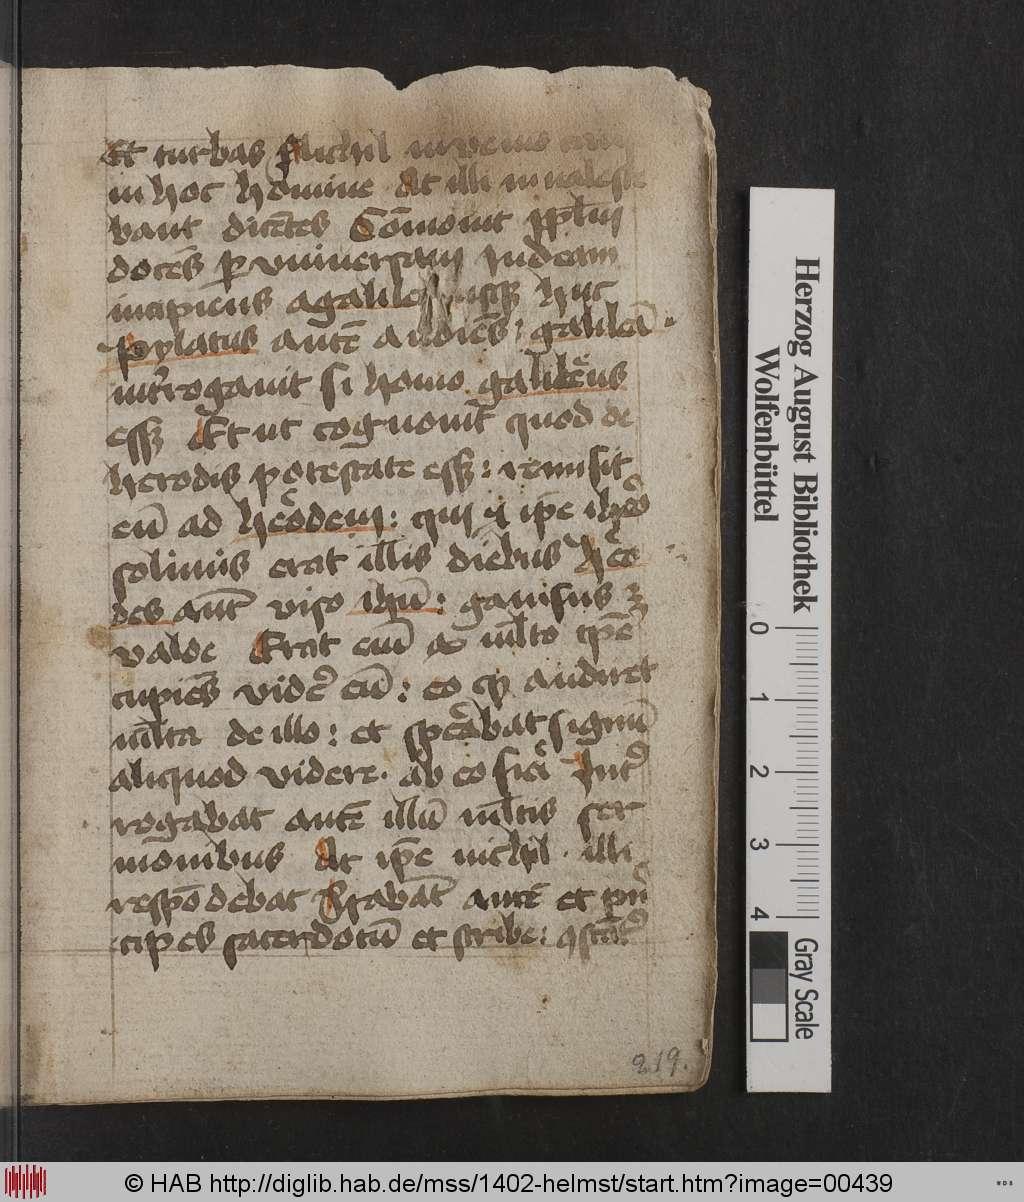 Et turbas Nichil inuenio
in hoc homine At illi inualesce
bant dicētes Cōmouit pplm
docēs ꝑ vniuersam Judeam
incipiens agalilea usqꝫ huc
pylatus autē audiēs : galileā
intʼrogauit si homo galileus
essꝫ Et ut cognouit quod de
herodis potestate essꝫ : remisit
eū ad herodem : qui ⁊ ipē ihero
solimis erat illis diebus hero
des aut viso ihu : gauisus ē
valde Erat eni ex mlto tpē
cupiēs vidē eū : eo ꝙ audiret
mlta de illo : et sperabat signū
aliquod videre ab eo fieri Intʼ
rogabat autē illū mltis ser
monibus At ipē nichil illi
respōdebat Stabāt autē et prin
cipes sacerdotū et scribe :
219.
Herzog August Bibliothek
Wolfenbüttel
0 1 2 3 4
Gray Scale
© HAB http://diglib.hab.de/mss/1402-helmst/start.htm?image=00439